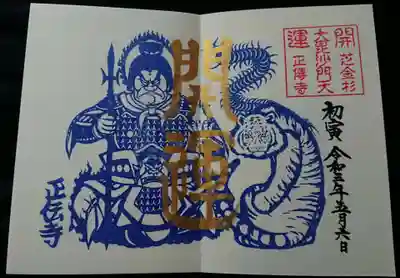 開芝金杉
大毘沙門天
運正傳寺
開運
初寅 令和三年五月六日
正伝寺